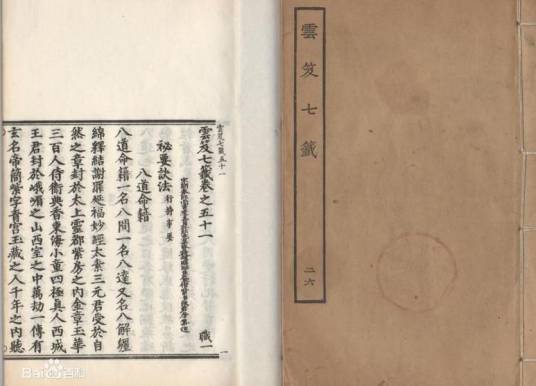 雲笈七籤
二六
雲笈七籤五十一
雲笈七籤卷之五十一
職一
祕要訣法
行持事要
八道命籍
八道命籍一名八間一名八達又名八解經
綿釋結謝罪延福妙經太素三元君受於自
然之章封於太上靈都紫房之內金章玉華
三百人侍衛典香東海小童四極真人西城
王君封於峨嵋之山西室之中萬劫一傳有
玄名帝簡紫字青宮玉藏之人千年之內聽
Baidu百科